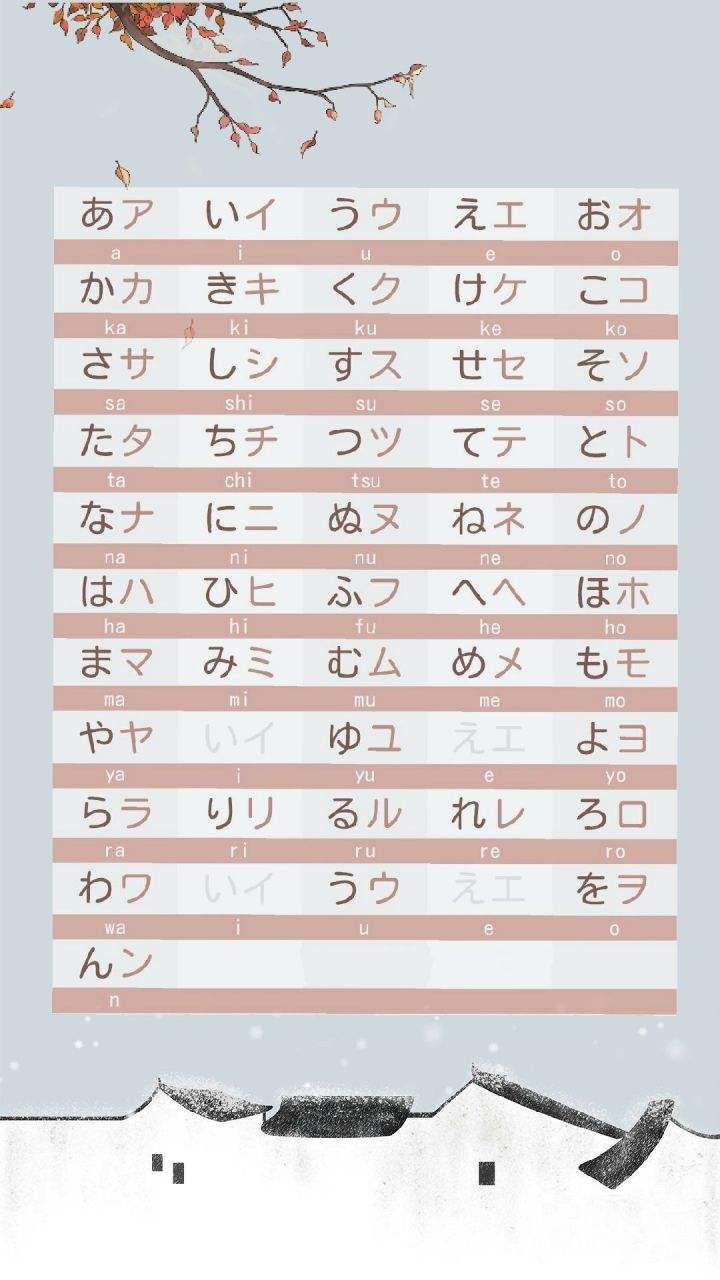 あア いイ うウ えエ おオ
a i u e o
かカ きキ くク けケ こコ
ka ki ku ke ko
さサ しシ すス せセ そソ
sa shi su se so
たタ ちチ つツ てテ とト
ta chi tsu te to
なナ にニ ぬヌ ねネ のノ
na ni nu ne no
はハ ひヒ ふフ へヘ ほホ
ha hi fu he ho
まマ みミ むム めメ もモ
ma mi mu me mo
やヤ いイ ゆユ えエ よヨ
ya i yu e yo
らラ りリ るル れレ ろロ
ra ri ru re ro
わワ いイ うウ えエ をヲ
wa i u e o
んン
n